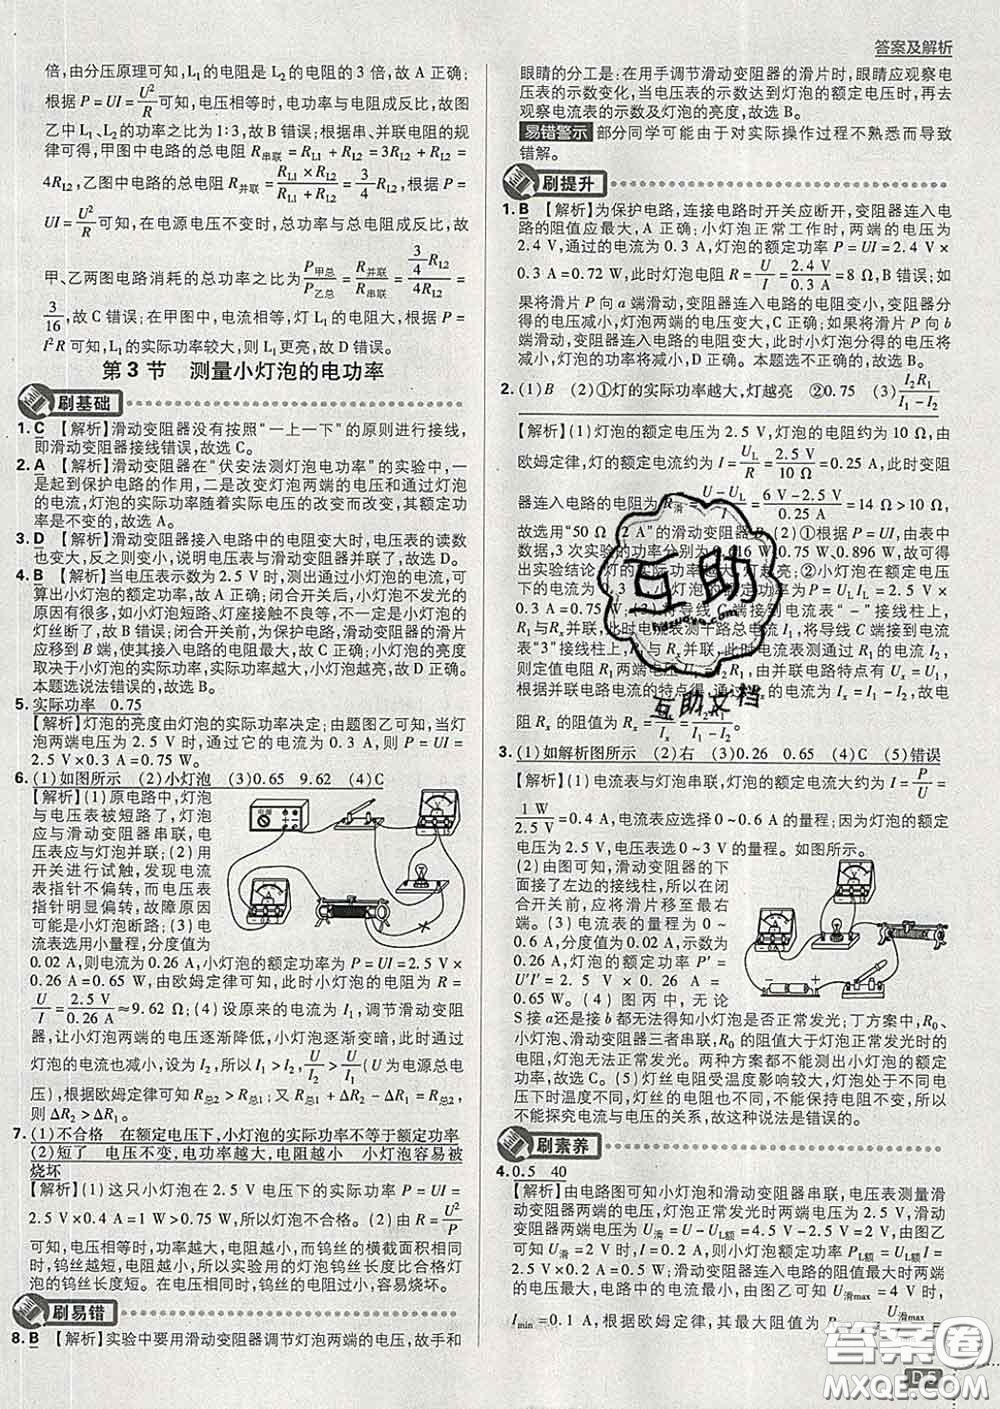 答案及解析
由分压原理可知,L₁的电阻是L₂的电阻的3倍,故A正确;
根据P=UI=U²/R可知,电压相等时,电功率与电阻成反比,故图
乙中L₁、L₂的功率之比为1:3,故B错误;根据串、并联电阻的规
律可得,甲图中电路的总电阻R串联=R_L1+R_L2=3R_L2+R_L2=
4R_L2,乙图中电路的总电阻R并联=(R_L1×R_L2)/(R_L1+R_L2)=3/4R_L2,根据P=
UI=U²/R可知,在电源电压不变时,总功率与总电阻成反比,则
甲、乙两图电路消耗的总功率之比为P甲总/P乙总=R并联/R串联=(3/4R_L2)/(4R_L2)=
3/16,故C错误;在甲图中,电流相等,灯L₁的电阻大,根据P=
I²R可知,L₁的实际功率较大,则L₁更亮,故D错误。
第3节 测量小灯泡的电功率
刷基础
1.C 【解析】滑动变阻器没有按照“一上一下”的原则进行接线,
即滑动变阻器接线错误,故选C。
2.A 【解析】滑动变阻器在“伏安法测灯泡电功率”的实验中,
一是起到保护电路的作用,二是改变灯泡两端的电压和通过灯泡
的电流,灯泡的实际功率随着实际电压的改变而改变,其额定功
率是不变的,故选A。
3.D 【解析】滑动变阻器接入电路中的电阻变大时,电压表的读数
也变大,反之则变小,说明电压表与滑动变阻器并联了,故选D。
4.B 【解析】当电压表示数为2.5 V时,测出通过小灯泡的电流,可
算出小灯泡的额定功率,故A正确;闭合开关后,小灯泡不发光的
原因有很多,如小灯泡短路、灯座接触不良等,不一定是小灯泡的
灯丝断了,故B错误;闭合开关前,为保护电路,滑动变阻器的滑片
应移到B端,使其接入电路的电阻最大,故C正确;小灯泡的亮度
取决于小灯泡的实际功率,实际功率越大,小灯泡越亮,故D正确。
本题选说法错误的,故选B。
5.实际功率 0.75
【解析】灯泡的亮度由灯泡的实际功率决定;由题图乙可知,当灯
泡两端电压为2.5 V时,通过它的电流为0.3 A,则P=UI=
2.5 V×0.3 A=0.75 W。
6.(1)如图所示 (2)小灯泡 (3)0.65 9.62 (4)C
【解析】(1)原电路中,灯泡
与电压表被短路了,灯泡
应与滑动变阻器串联,电
压表应与灯泡并联;(2)用
开关进行试触,发现电流
表指针不偏转,而电压表
指针明显偏转,故障原因
可能是小灯泡断路;(3)电
流表选用小量程,分度值为
0.02 A,则电流为0.26 A,小灯泡的额定功率P=UI=2.5 V×
0.26 A=0.65 W,由欧姆定律可知,此时小灯泡的电阻为R=
U/I=2.5 V/0.26 A≈9.62 Ω;(4)设原来的电流为I₁,调节滑动变阻
器,让小灯泡两端的电压逐渐降低,小灯泡逐渐变暗时,通过小灯
泡的电流也减小,设为I₂,故I₂<I₁,U/I₂>U/I₁(U为电源电压,保
持不变),根据欧姆定律可知R总2>R总1;又R总2=ΔR₂+R,R总1=ΔR₁+R,
则ΔR₂>ΔR₁。故选C。
7.(1)不合格 在额定电压下,小灯泡的实际功率不等于额定功率
(2)短了 电压不变,电功率越大,电阻越小 小灯泡容易被
烧坏
【解析】(1)这只小灯泡在2.5 V电压下的实际功率P=UI=
2.5 V×0.4 A=1 W>0.75 W,所以灯泡不合格。(2)由R=U²/P
可知,电压相等时,功率越大,电阻越小;而钨丝的横截面积相同时,
钨丝越短,电阻越小,所以实验用的灯泡钨丝长度比合格灯
泡的钨丝长度短。在电压相同时,钨丝的电阻越小,容易烧坏。
刷易错
8.B 【解析】实验中要用滑动变阻器调节灯泡两端的电压,故手和
眼睛的分工是:在用手调节滑动变阻器的滑片时,眼睛应观察电
压表的示数变化,当电压表的示数达到灯泡的额定电压时,再去
观察电流表的示数及灯泡的亮度,故选B。
易错警示 部分同学可能由于对实际操作过程不熟悉而导致
错解。
刷提升
1.B 【解析】为保护电路,连接电路时开关应断开,变阻器连入电
路的阻值应最大,A正确;小灯泡正常工作时,两端的电压为
2.4 V,通过的电流为0.3 A,灯泡的额定功率P=UI=2.4 V
×0.3 A=0.72 W,此时灯泡电阻R=U/I=2.4 V/0.3 A=8 Ω,B错误;如
果将滑片P向a端滑动,变阻器连入电路的电阻变小,变阻器分
得的电压减小,灯泡两端的电压变大,C正确;如果将滑片P向b
端滑动,变阻器连入电路的电阻变大,电路中的电流变小,灯泡功率
将减小,灯泡将变暗,D正确。本题选不正确的,故选B。
2.(1)B (2)①灯的实际功率越大,灯越亮 ②0.75 (3)I₂R₁/(I₁-I₂)
【解析】(1)灯泡的额定电压为2.5 V,灯泡的电阻约为10 Ω,由
欧姆定律,灯的额定电流约为I=U_L/R=2.5 V/10 Ω=0.25 A,此时滑动变阻
器连入电路的电阻为R滑=(U-U_L)/I=(6 V-2.5 V)/0.25 A=14 Ω>10 Ω,
故选用“50 Ω 2 A”的滑动变阻器B。(2)①由P=UI,由表中
数据,3次实验的功率分别为0.016 W、0.75 W、0.896 W,故可得
出实验结论:灯的实际功率越大,灯越亮;②小灯泡在额定电压
下的电流为0.3 A,
R₁与Rₓ并联,此时电流表测干路总电流I₁,将导线C端接到电流
表“3”接线柱上,R₁与Rₓ并联,此时电流表测通过R₁的电流I₂,
则定值电阻R₁两端电压U₁=I₂R₁。由并联电路特点有Uₓ=U₁=I₂R₁。
根据并联电路电流的特点得,通过Rₓ的电流为Iₓ=I₁-I₂,故电
阻Rₓ的阻值为Rₓ=Uₓ/Iₓ=I₂R₁/(I₁-I₂)。
3.(1)如解析图所示 (2)右 (3)0.26 0.65 (4)C (5)错误
【解析】(1)电流表与灯泡串联,灯泡的额定电流大约为I=P/U=
1 W/2.5 V=0.4 A,电流表应选择0~0.6 A的量程;因为灯泡的额定
电压为2.5 V,电压表选0~3 V的量程。如图所示。
(2)由图可知,滑动变阻器的下
面接了左边的接线柱,所以在
闭合开关前,应将滑片移至最右
端。(3)电流表的量程为0~
0.6 A,分度值为0.02 A,示数为
0.26 A,小灯泡的额定功率P′=
U′I′=2.5 V×0.26 A=
0.65 W。(4)图丙中,无论
S接a还是接b都无法得知小灯泡是否正常发光;丁方案中,R₀、
小灯泡、滑动变阻器三者串联,R₀的阻值大于灯泡正常发光时的
电阻,灯泡无法正常发光。两种方案都不能测出小灯泡的额定
功率,故选C。(5)灯丝电阻受温度影响较大,灯泡处于不同电
压下时温度不同,灯丝电阻会随着灯丝温度的变化而变化,所以
不能探究电流与电压的关系,故这种说法是错误的。
刷素养
4.0.5 40
【解析】由电路图可知小灯泡和滑动变阻器串联,电压表测量滑
动变阻器两端的电压,灯泡正常发光时两端电压为2.5 V,滑动
变阻器两端电压为U滑=U-U_L额=4.5 V-2.5 V=2 V,由图乙
可知U滑=2 V时,I=0.2 A,则小灯泡额定功率P_L额=U_L额I=
2.5 V×0.2 A=0.5 W;滑动变阻器接入电路中的电阻最大时两
端电压最大,电路中的电流最小,由图乙可知U滑max=4 V时,
Imin=0.1 A,根据欧姆定律可知,其最大阻值为R=U滑max
互助
互助文档
答案圈
MXQE.COM